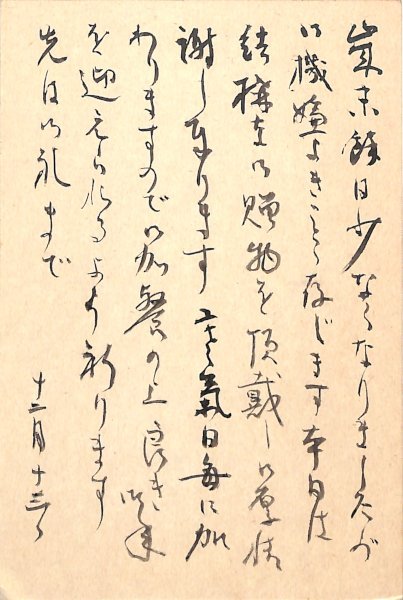 歳末餘日少なくなりましたが
御機嫌よきことゝ存じます本日は
結構な御贈物を頂戴し御厚情
謝し奉ります 寒氣日毎に加
わりますので御加餐の上良き年
を迎えられるよう祈ります
先は御礼まで
十二月十三日